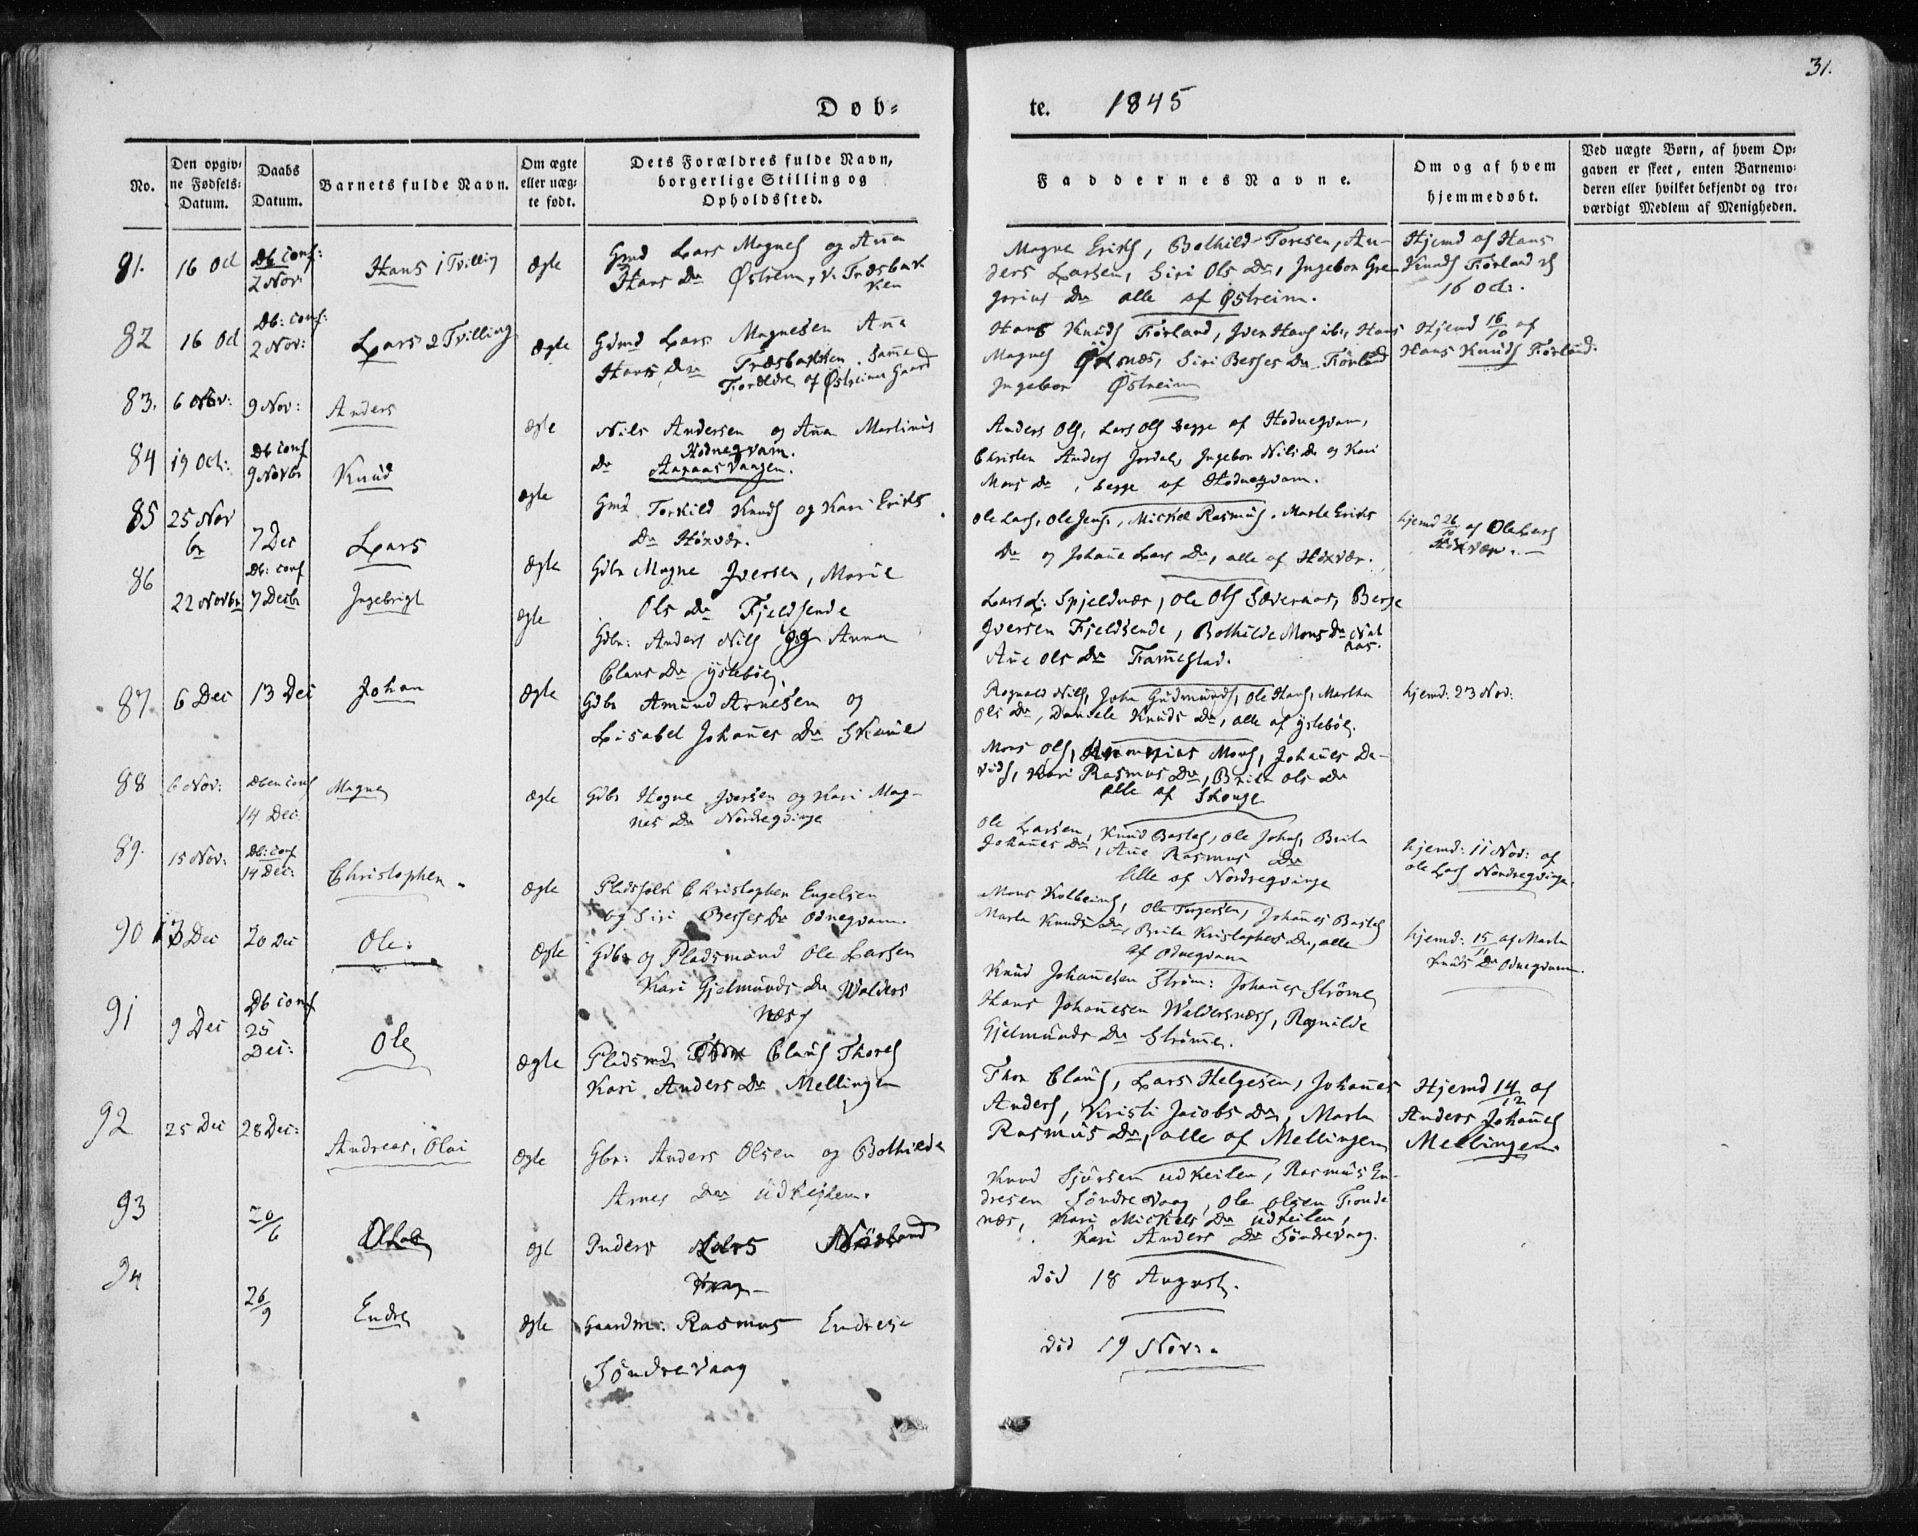 31.
Døb-
te. 1845
No.
Den opgiv-
ne Fødsels-
Datum.
Daabs
Datum.
Barnets fulde Navn.
Om ægte
eller uæg-
te født.
Dets Forældres fulde Navn,
borgerlige Stilling og
Opholdssted.
Faddernes Navne.
Om og af hvem
hjemmedøbt.
Ved uægte Børn, af hvem Op-
gaven er skeet, enten Barnemo-
deren eller hvilket bekjendt og tro-
værdigt Medlem af Menigheden.
81.
16 Oct
Db conf:
2 Nov
Hans 1 Tvilling
Ægte
Gmd Lars Magnes og Aña
Hans Dr Østreim, v. Træsbak
ken
Magne Eriks, Bothild Toresen, An-
ders Larsen, Siri Ols Dr, Ingebor Gre
gorius Dr alle af Østreim.
Hjemd af Hans
Knuds Førland d
16 Oct.
82
16 Oct
Db: conf:
2 Nov:
Lars 2 Tvilling
Ægte
Gdmd Lars Magnesen Aña
Hans Dr Træsbakken. Samme
Forældre af Østreims Gaard
Hans Knuds Førland, Iver Hans ib., Hans
Magnes Østreim, Siri Berges Dr Førland
Ingebor Østreim
Hjemd 16/10 af
Hans Knuds Førland:
83.
6 Nov:
9 Nov:
Anders
Ægte
Nils Andersen og Aña Martinus
Dr Hodnegvam.
Anders Ols, Lars Ols begge af Hodnegvam,
Christen Anders Jordal, Ingebor Nils Dr og Kari
Mons Dr, begge af Hodnegvam.
84
19 Oct:
Db conf
9 Novbr
Knud
Ægte
Gmd Torkild Knuds og Kari Eriks
Dr Höxvær.
Ole Lars, Ole Jens, Mickel Rasmus. Marte Eriks
Dr og Johañe Lars Dr, alle af Höxvær.
hjemd 26/10 af Ole Lars
Höxvær.
85
25 Nov
br
7 Dec
Lars
Ægte
Gdbr Magne Iversen, Marie
Ols Dr Fjeldsende
Lars L: Spjeldnæs, Ole Ols Severaas, Berge
Iversen Fjeldsende, Bothilde Mons Dr
Añe Ols Dr Framestad.
86
22 Novbr
Db: conf
7 Decbr
Ingebrigt
Ægte
Gdbr: Anders Nils og Anna
Claus Dr Ystebøe.
Rognald Nils, John Gudmunds, Ole Hans, Martha
Ols Dr, Daniele Knuds Dr, alle af Ystebøe.
hjemd: 23 Nov:
87.
6 Dec
13 Dec
Johan
Ægte
Gdbr Amund Arnesen og
Lisabet Johañes Dr
Mons Ols, Mons, Johañes Da-
vids, Kari Rasmus Dr, Brite Ols Dr
alle af
88
6 Nov:
Dben conf
14 Dec.
Magne
Ægte
Gdbr Hogne Iversen og Kari Mag-
nes Dr Nordregvinge
Ole Larsen, Knud Bastes, Ole Johañ, Brita
Johañes Dr, Añe Rasmus Dr
alle af Nordregvinge
hjemd: 11 Nov: af
Ole Lars Nordregvinge.
89.
15 Nov:
Db: conf
14 Dec:
Christopher.
Ægte
Pladsfolk Christopher Engelsen
og Siri Berges Dr Odnegvam.
Mons Kolbeins, Ole Torgersen, Johañes Bastes
Marta Knuds Dr, Brita Kristophes Dr, alle
af Odnegvam
hjemd: 15/11 af Marta
Knuds Dr Odnegvam.
90
13 Dec
20 Dec
Ole:
Ægte
Gdbr og Pladsmand Ole Larsen
Kari Gjelmunds Dr Walders
næs
Knud Johañesen Strøm: Johañes Strøme
Hans Johañesen Waldersnæs, Ragnilde
Gjelmunds Dr Strøme.
91
9 Dec
Db conf
25
Dec:
Ole
Ægte
Pladsmd Claus Thores
Kari Anders Dr Mellingen
Thor Claus, Lars Helgesen, Johañes
Anders, Kristi Jacobs Dr, Marta
Rasmus Dr, alle af Mellingen
Hjemd 14/12 af
Anders Johañes
Mellingen
92
25 Dec
28 Dec:
Andreas, Olai
Ægte
Gbr: Anders Olsen og Bothilda
Arnes Dr Udkeilen.
Knud Sjursen Udkeilen, Rasmus En-
dresen Søndrevaag, Ole Olsen Tronde
næs, Kari Mickels Dr Udkeilen,
Kari Anders Dr Søndrevaag.
93
20/6
Ægt
Anders Lars
død 18 August.
94
26/9
Endre
Ægte
Gaardm: Rasmus Endresen
Søndrevaag
død 19 Novr.